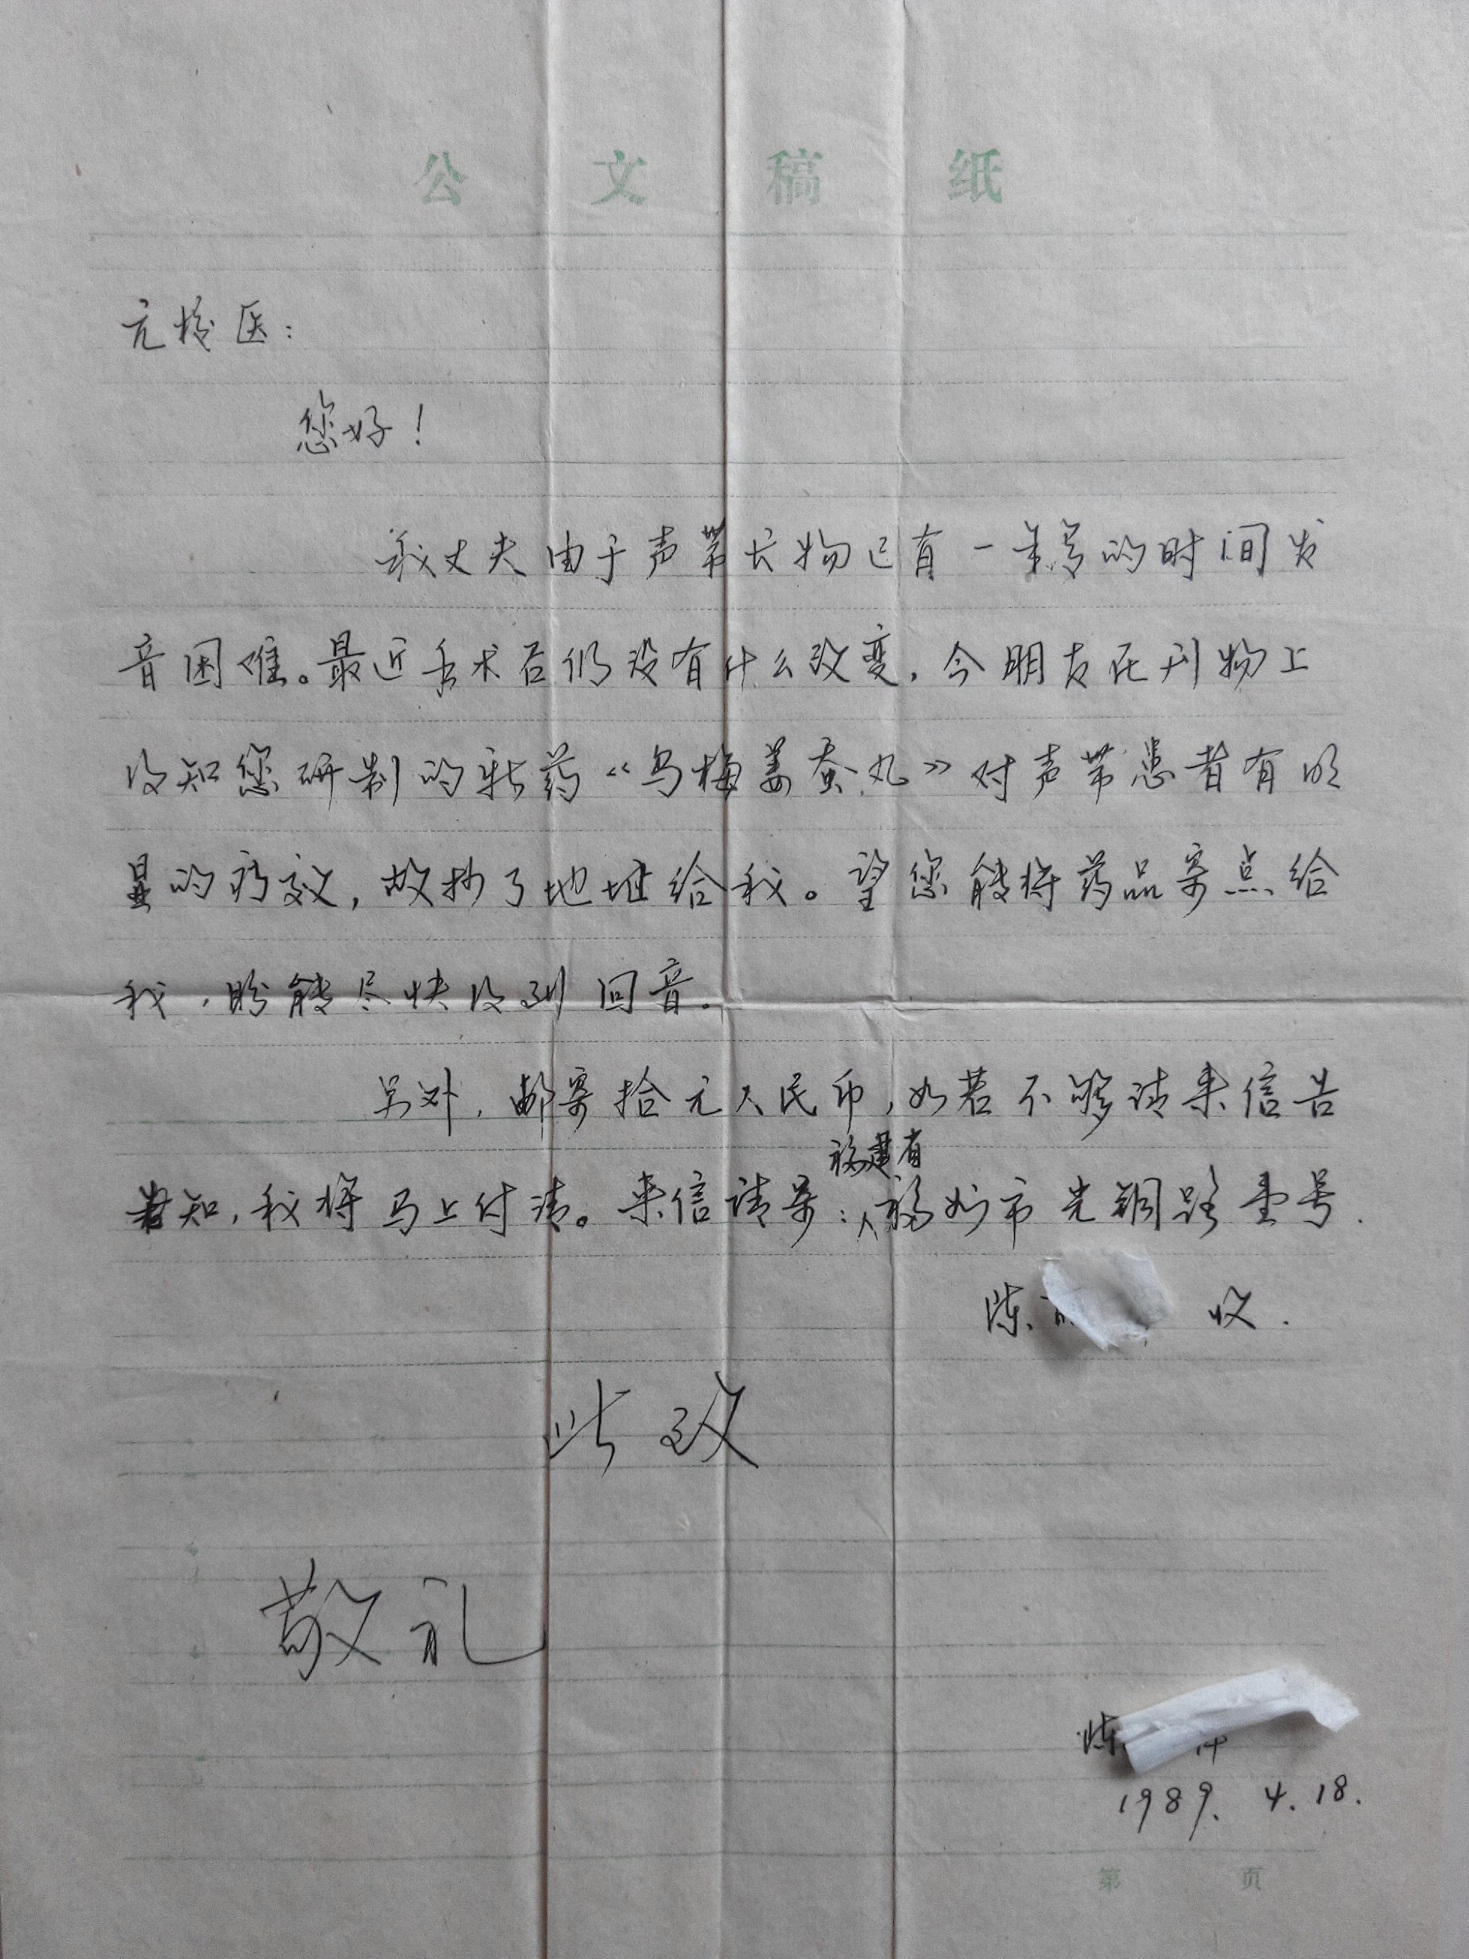 公文稿纸
亢 医：
您好！
我丈夫由于声带长物已有一年多的时间发
音困难。最近手术后仍没有什么改变，今朋友在刊物上
得知您研制的新药《乌梅姜蚕丸》对声带患者有明
显的疗效，故抄了地址给我。望您能将药品寄点给
我，盼能尽快得到回音。
另外，邮寄拾元人民币，如若不够请来信告
知，我将马上付清。来信请寄：
福建省
福 市光明路壹号.
陈 收.
此致
敬礼
陈
1989. 4. 18.
第 页